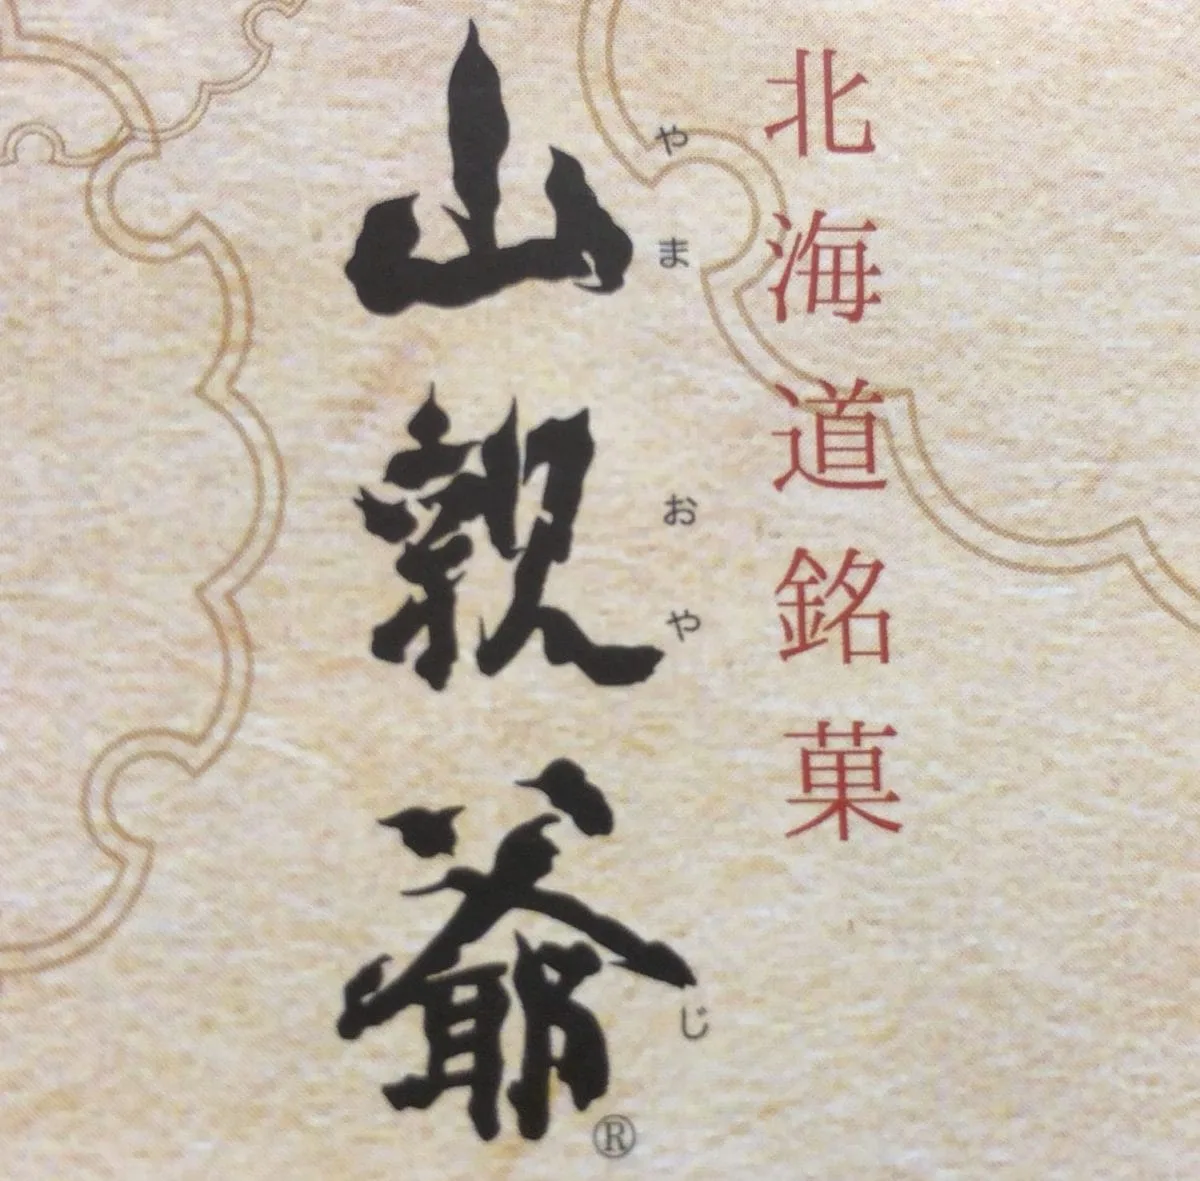 北海道銘菓
やまおやじ
山親爺®